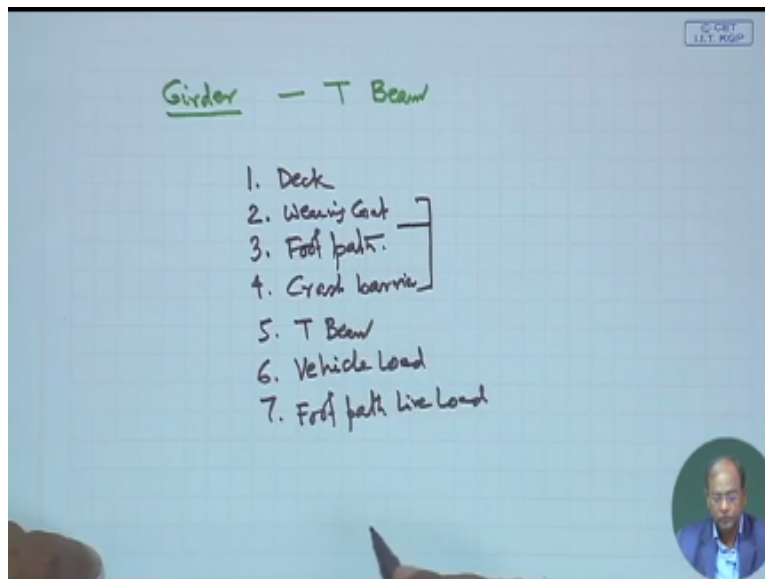 © CET
I.I.T. KGP
Girder — T Beam
1. Deck
2. Wearing Coat
3. Foot path.
4. Crash barrier
5. T Beam
6. Vehicle Load
7. Foot path Live Load